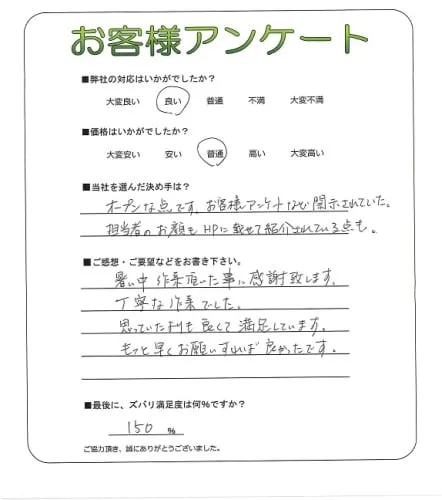 お客様アンケート
■弊社の対応はいかがでしたか?
大変良い 良い 普通 不満 大変不満
■価格はいかがでしたか?
大変安い 安い 普通 高い 大変高い
■当社を選んだ決め手は?
オープンな点です。お客様アンケートなど開示されていた。
担当者のお顔もHPに載せて紹介されている点も。
■ご感想・ご要望などをお書き下さい。
暑い中作業頂いた事に感謝致します。
丁寧な作業でした。
思っていたよりも良くて満足しています。
もっと早くお願いすれば良かったです。
■最後に、ズバリ満足度は何%ですか?
150 %
ご協力頂き、誠にありがとうございました。